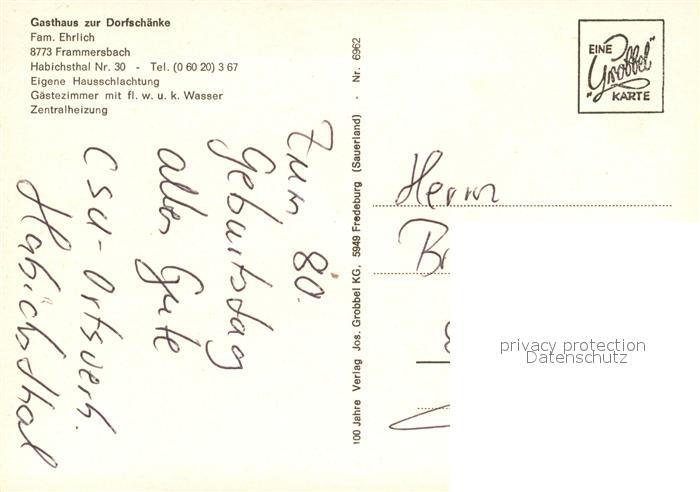 Gasthaus zur Dorfschänke
Fam. Ehrlich
8773 Frammersbach
Habichsthal Nr. 30 - Tel. (0 60 20) 3 67
Eigene Hausschlachtung
Gästezimmer mit fl. w. u. k. Wasser
Zentralheizung
Zum 80.
Geburtstag
alles Gute
CSU-Ortsverb.
Habichsthal
100 Jahre Verlag Jos. Grobbel KG, 5949 Fredeburg (Sauerland) · Nr. 6962
EINE
"Grobbel"
KARTE
Herrn
privacy protection
Datenschutz